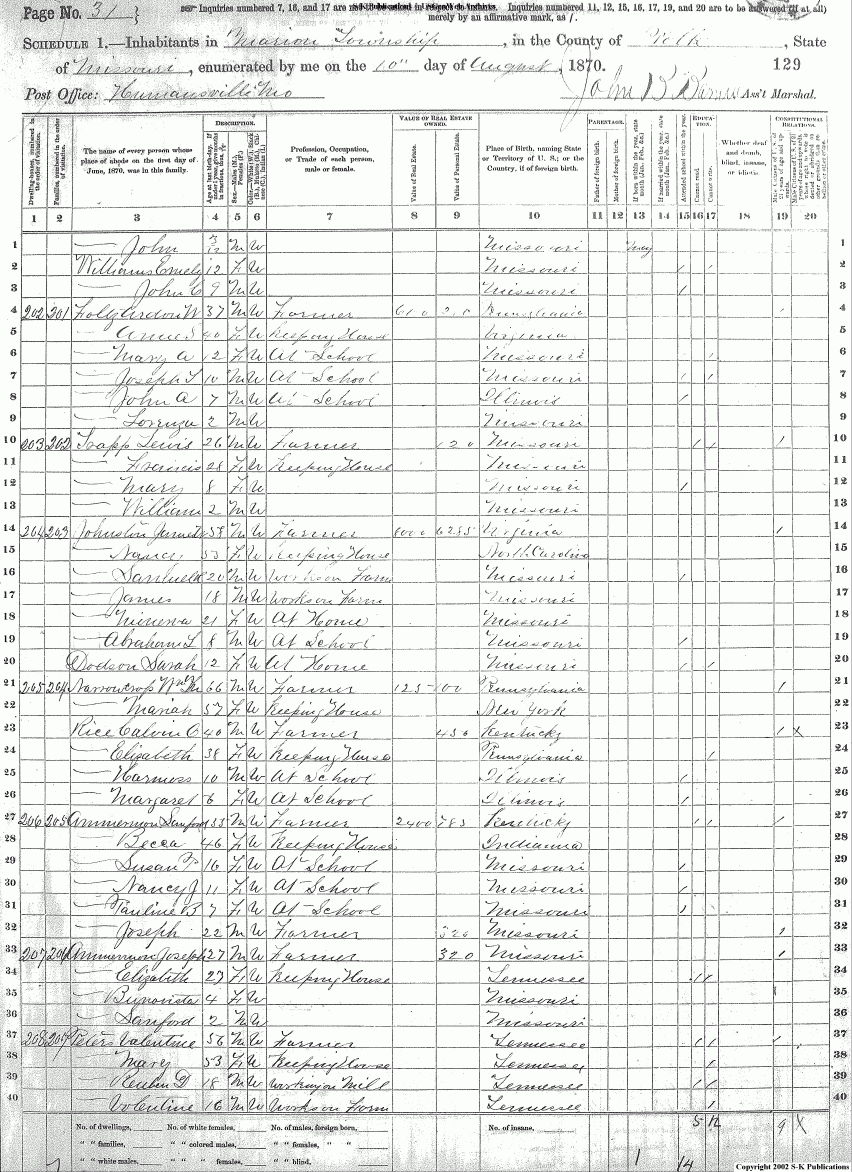 Page No. 31
Inquiries numbered 7, 16, and 17 are not to be asked in respect to infants. Inquiries numbered 11, 12, 15, 16, 17, 19, and 20 are to be answered (if at all)
merely by an affirmative mark, as /.
SCHEDULE 1.—Inhabitants in Marion Township, in the County of Polk, State
of Missouri, enumerated by me on the 10th day of August, 1870. 129
Post Office: Humansville Mo John B Ass't Marshal.
DESCRIPTION. VALUE OF REAL ESTATE OWNED. PARENTAGE. EDUCATION. CONSTITUTIONAL RELATIONS.
Dwelling-houses, numbered in the order of visitation.
Families, numbered in the order of visitation.
The name of every person whose place of abode on the first day of June, 1870, was in this family.
Profession, Occupation, or Trade of each person, male or female.
Value of Real Estate.
Value of Personal Estate.
Place of Birth, naming State or Territory of U. S.; or the Country, if of foreign birth.
Father of foreign birth.
Mother of foreign birth.
Attended school within the year.
Cannot read.
Cannot write.
Whether deaf and dumb, blind, insane, or idiotic.
1 2 3 4 5 6 7 8 9 10 11 12 13 14 15 16 17 18 19 20
1 — John 3/12 M W Missouri May 1
2 Williams Emely 12 F W Missouri / / 2
3 — John C 9 M W Missouri / 3
4 202 201 37 M W Farmer Pennsylvania / 4
5 — 40 F W Keeping House Virginia 5
6 — Mary A 12 F W At School Missouri / 6
7 — Joseph 10 M W At School Missouri / / 7
8 — John A 7 M W At School Illinois / 8
9 — Lorenzo 2 M W Missouri 9
10 203 202 Lewis 26 M W Farmer 120 Missouri / / / 10
11 — Francis 28 F W Keeping House Missouri 11
12 — Mary 8 F W Missouri / 12
13 — William 2 M W Missouri 13
14 204 203 Johnston 58 M W Farmer Virginia / 14
15 — Nancy 53 F W Keeping House North Carolina 15
16 — Samuel 20 M W Works on Farm Missouri / 16
17 — James 18 M W Works on Farm Missouri 17
18 — Minerva 21 F W At Home Missouri 18
19 — Abraham L 8 M W At School Missouri / 19
20 Dodson Sarah 12 F W At Home Missouri / / 20
21 205 204 66 M W Farmer 125 100 Pennsylvania / 21
22 — Mariah 57 F W Keeping House New York 22
23 Rice Calvin C 40 M W Farmer 450 Kentucky / X 23
24 — Elizabeth 38 F W Keeping House Pennsylvania / 24
25 — 10 M W At School Illinois / 25
26 — Margaret 6 F W At School Illinois / 26
27 206 205 Ammermon Sanford M W Farmer 2400 785 Kentucky / / / 27
28 — Becca 46 F W Keeping House Indianna 28
29 — Susan 16 F W At School Missouri / 29
30 — Nancy J 11 F W At School Missouri / 30
31 — Pauline B 7 F W At School Missouri / 31
32 — Joseph 22 M W Farmer 320 Missouri / 32
33 207 206 Ammermon Joseph 27 M W Farmer 320 Missouri / 33
34 — Elizabeth 27 F W Keeping House Tennessee / / 34
35 — Bunavista 4 F W Missouri 35
36 — Sanford 2 M W Missouri 36
37 208 207 Peters Valentine 56 M W Farmer Tennessee / / / 37
38 — Mary 53 F W Keeping House Tennessee / 38
39 — Reuben D 18 M W Working on Mill Tennessee / / 39
40 — Volentine 16 M W Works on Farm Tennessee / 40
No. of dwellings, No. of white females, No. of males, foreign born, No. of insane, 5 12 9 X
" " families, " " colored males, " " females, " "
" " white males, " " " females, " " blind, 1 14
Copyright 2002 S-K Publications